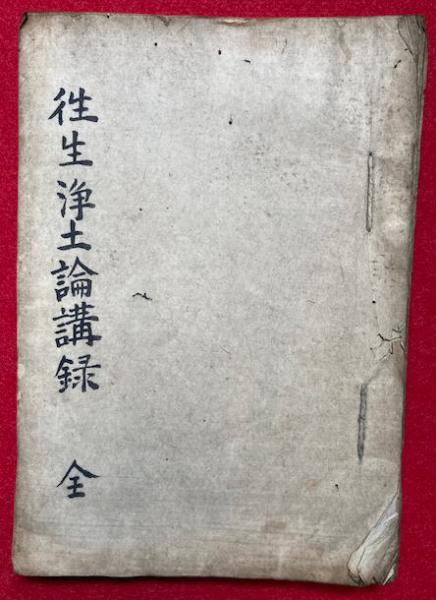 往生浄土論講録 全